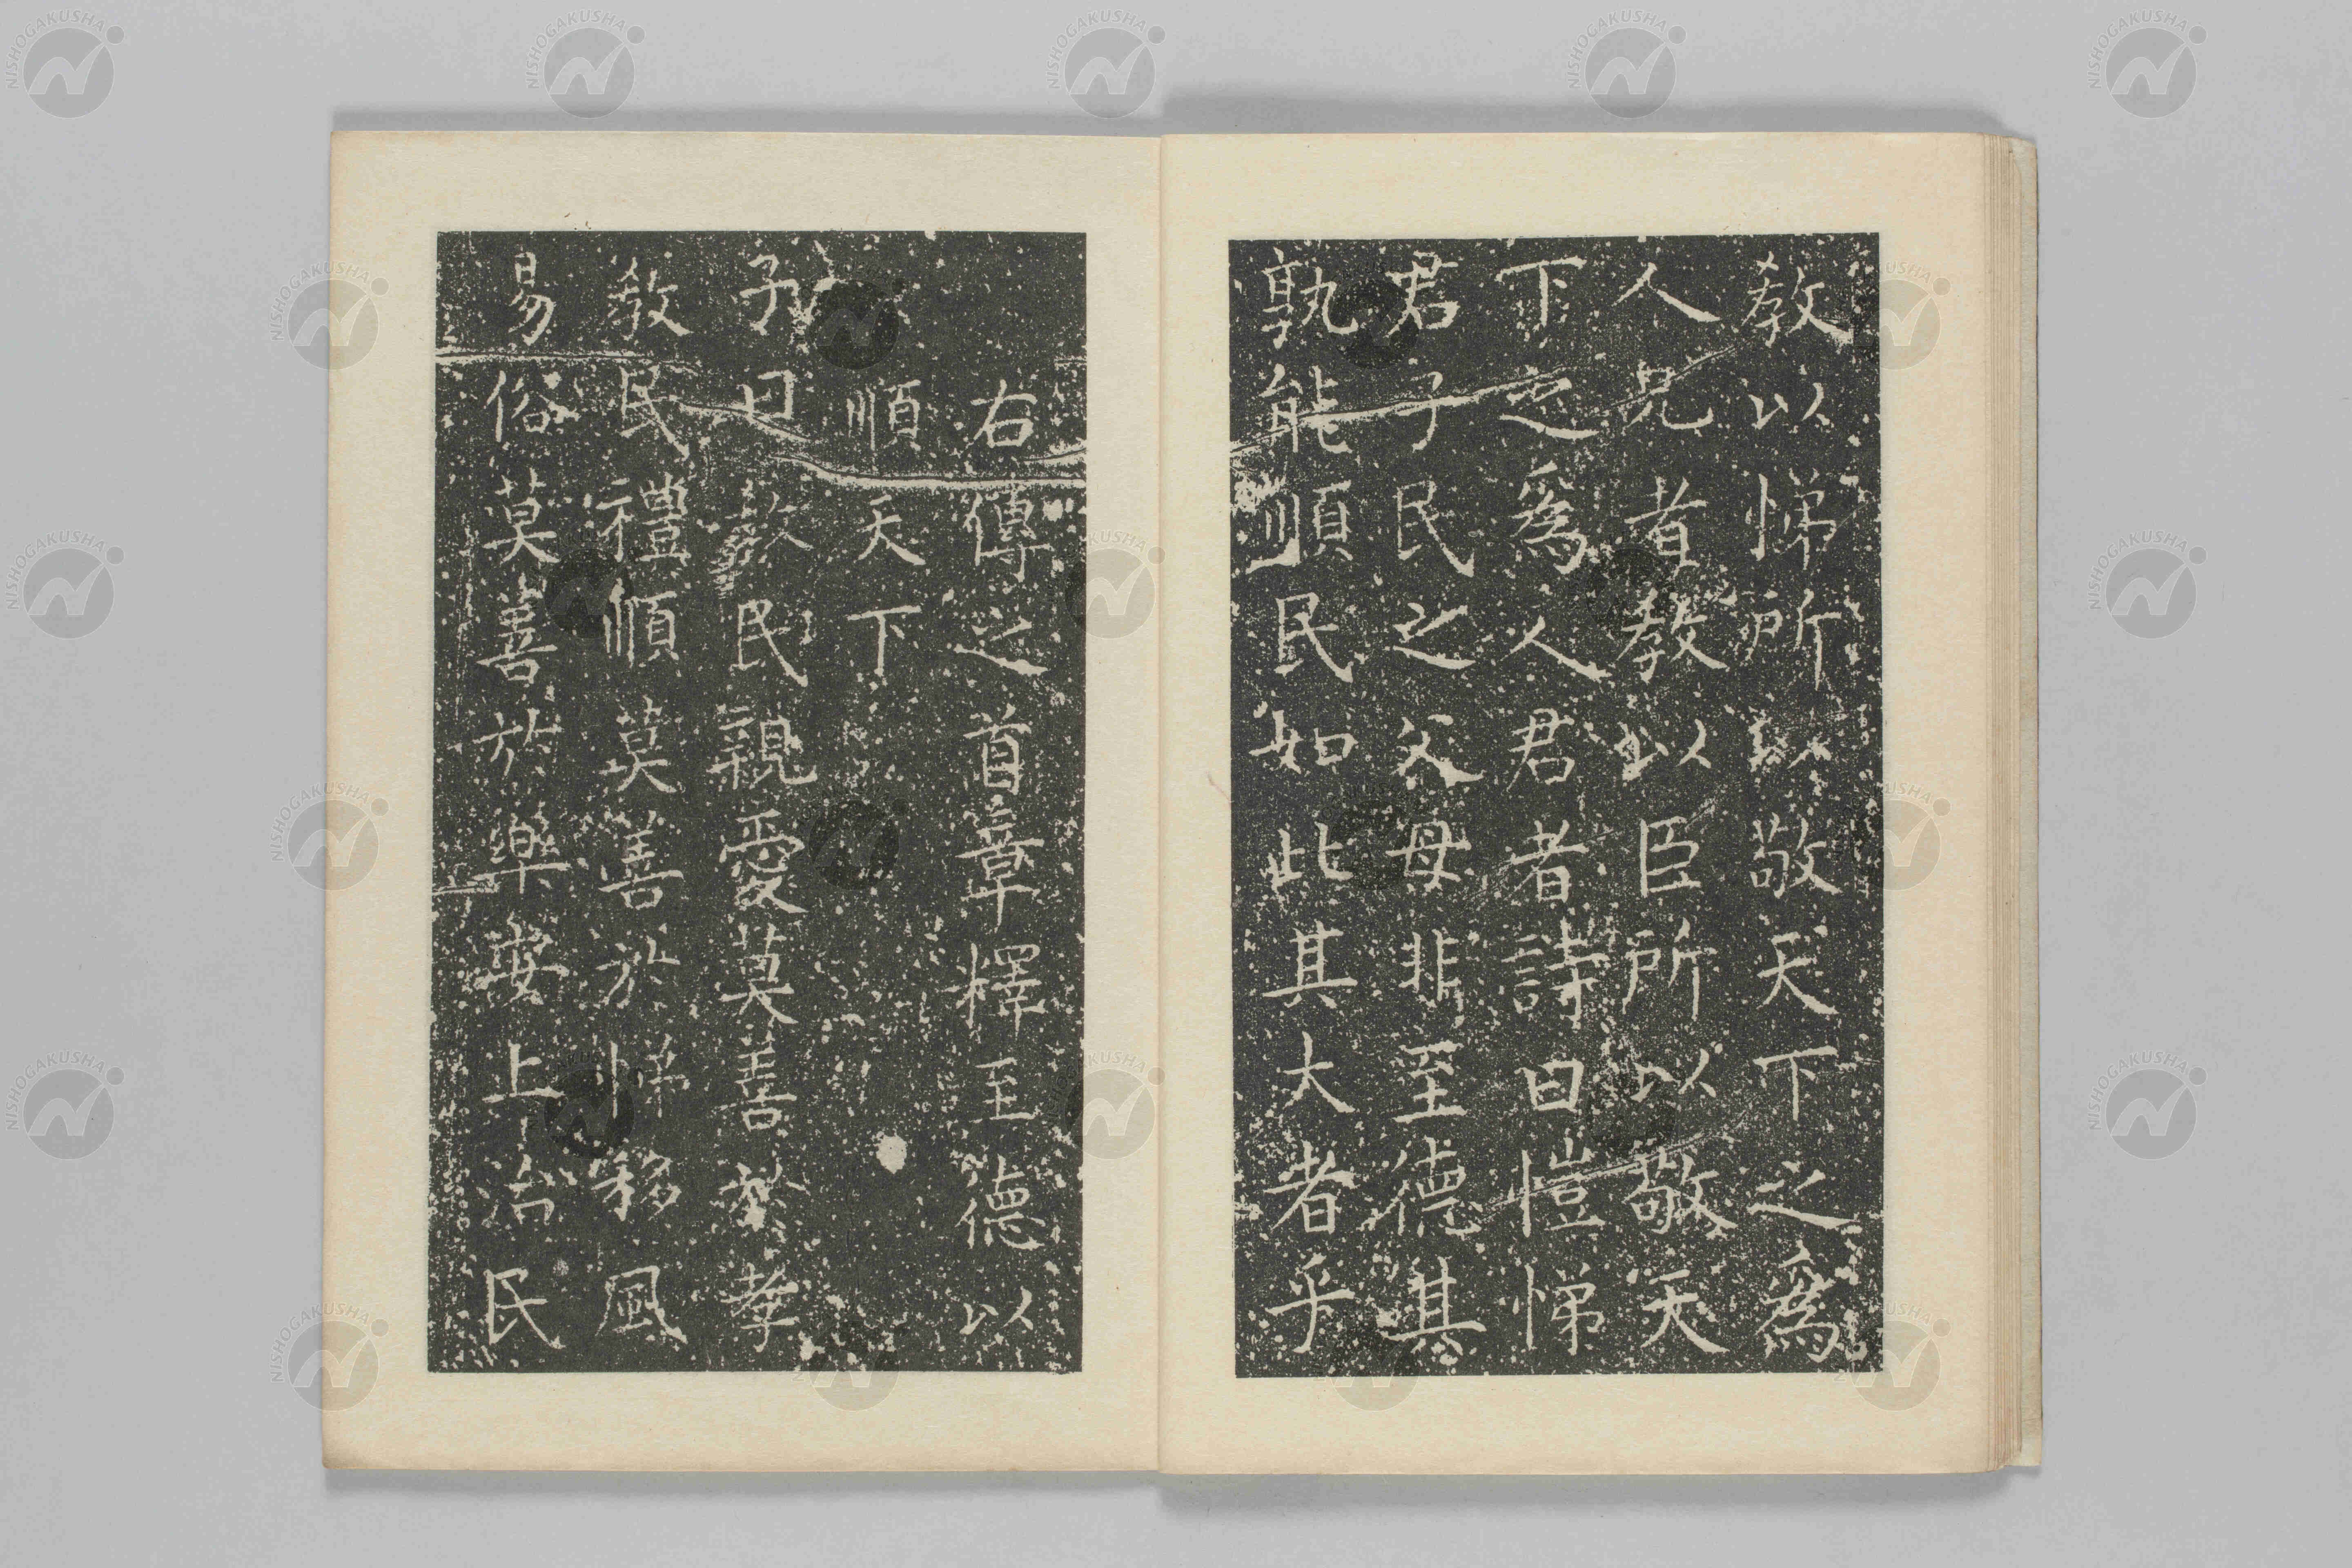 教以悌所以敬天下之爲
人兄者教以臣所以敬天
下之爲人君者詩曰愷悌
君子民之父母非至德其
孰能順民如此其大者乎
右傳之首章釋至德以
順天下
子曰教民親愛莫善於孝
教民禮順莫善於悌移風
易俗莫善於樂安上治民
NISHOGAKUSHA